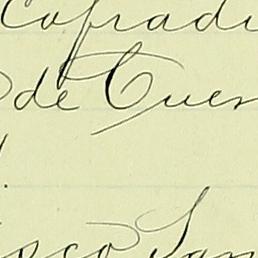 Cofradi
de Cuer
isco San